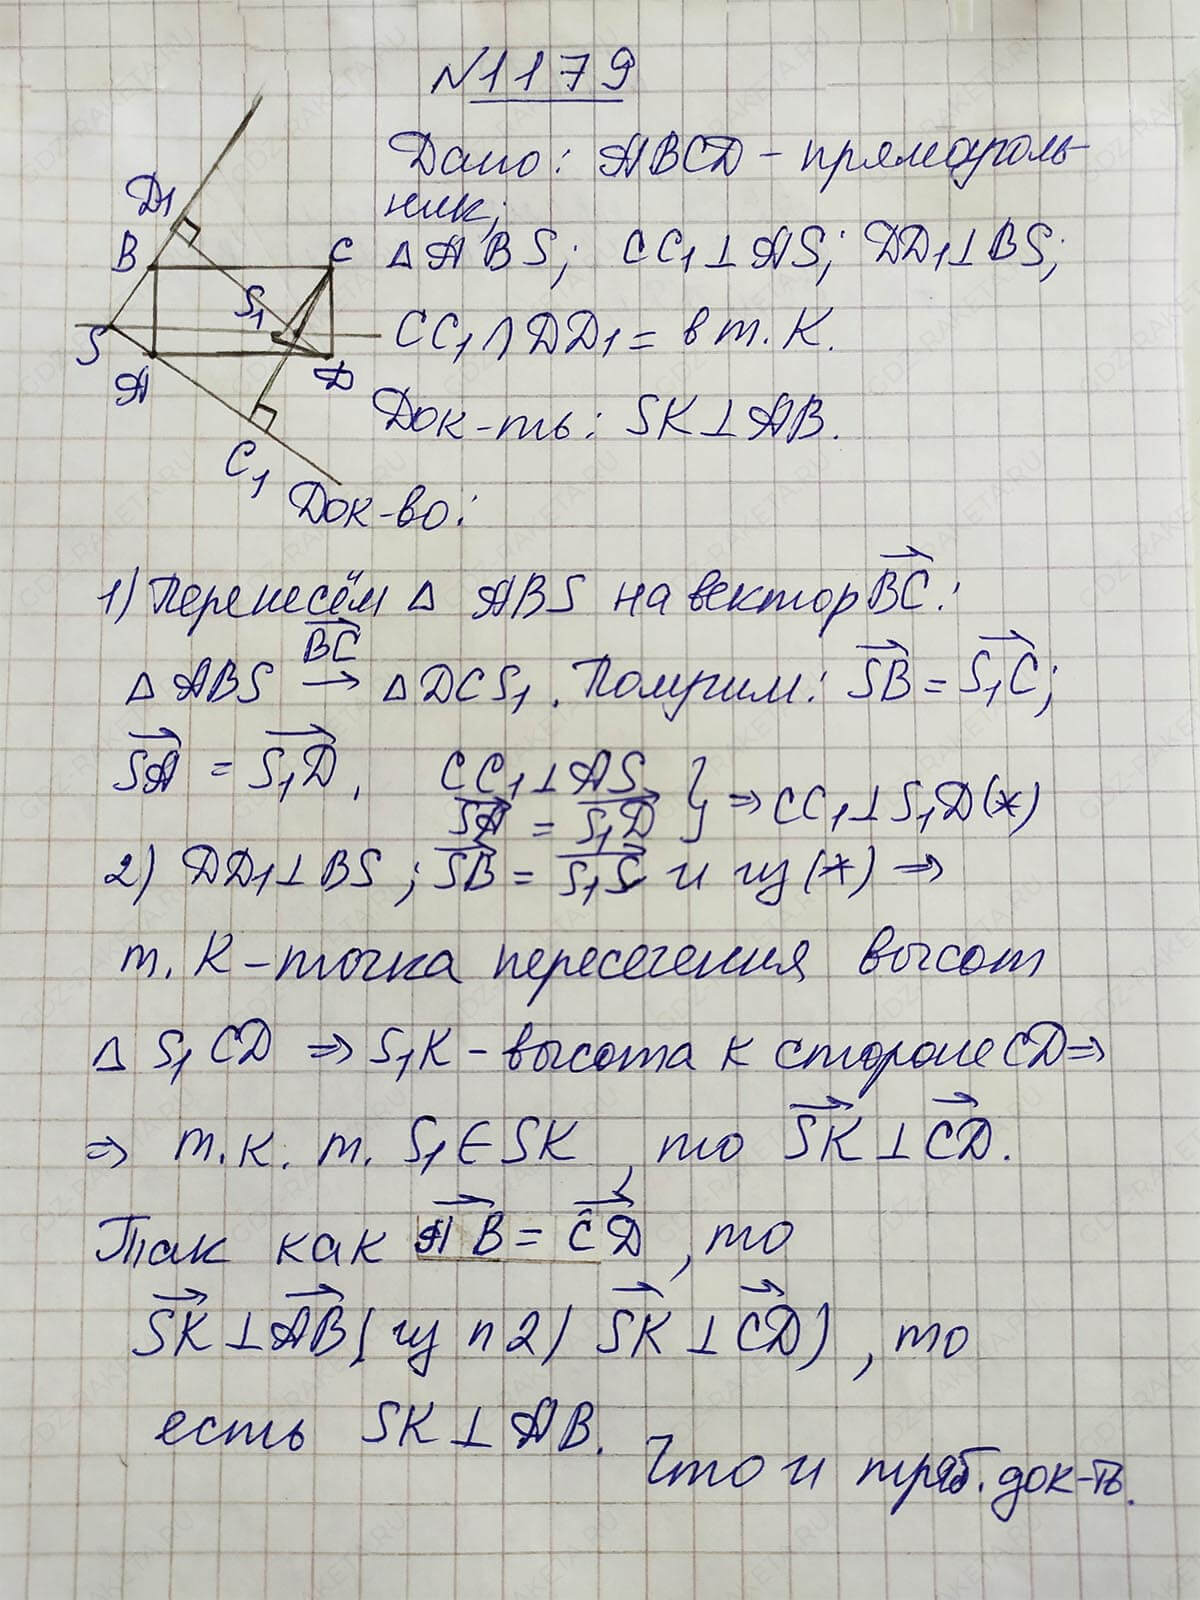 N1179
Дано: ABCD - прямоуголь-
ник;
△ABS; CC₁⊥AS; DD₁⊥BS;
CC₁∩DD₁ = в т. K.
Док-ть: SK⊥AB.
D₁
B
C
S₁
S
A
D
C₁
Док-во:
1) Перенесём △ ABS на вектор BC⃗:
△ABS →(BC⃗) △DCS₁. Получим: SB⃗ = S₁C⃗;
SA⃗ = S₁D⃗, CC₁⊥AS, SA⃗ = S₁D⃗ } ⇒ CC₁⊥S₁D(*)
2) DD₁⊥BS; SB⃗ = S₁C⃗ и из (*) ⇒
т. K - точка пересечения высот
△ S₁CD ⇒ S₁K - высота к стороне CD ⇒
⇒ т.к. т. S₁∈SK, то SK⃗⊥CD⃗.
Так как AB⃗ = CD⃗, то
SK⃗⊥AB⃗ (из п2) SK⃗⊥CD⃗), то
есть SK⊥AB.
Что и треб. док-ть.
GDZ-RAKETA.RU